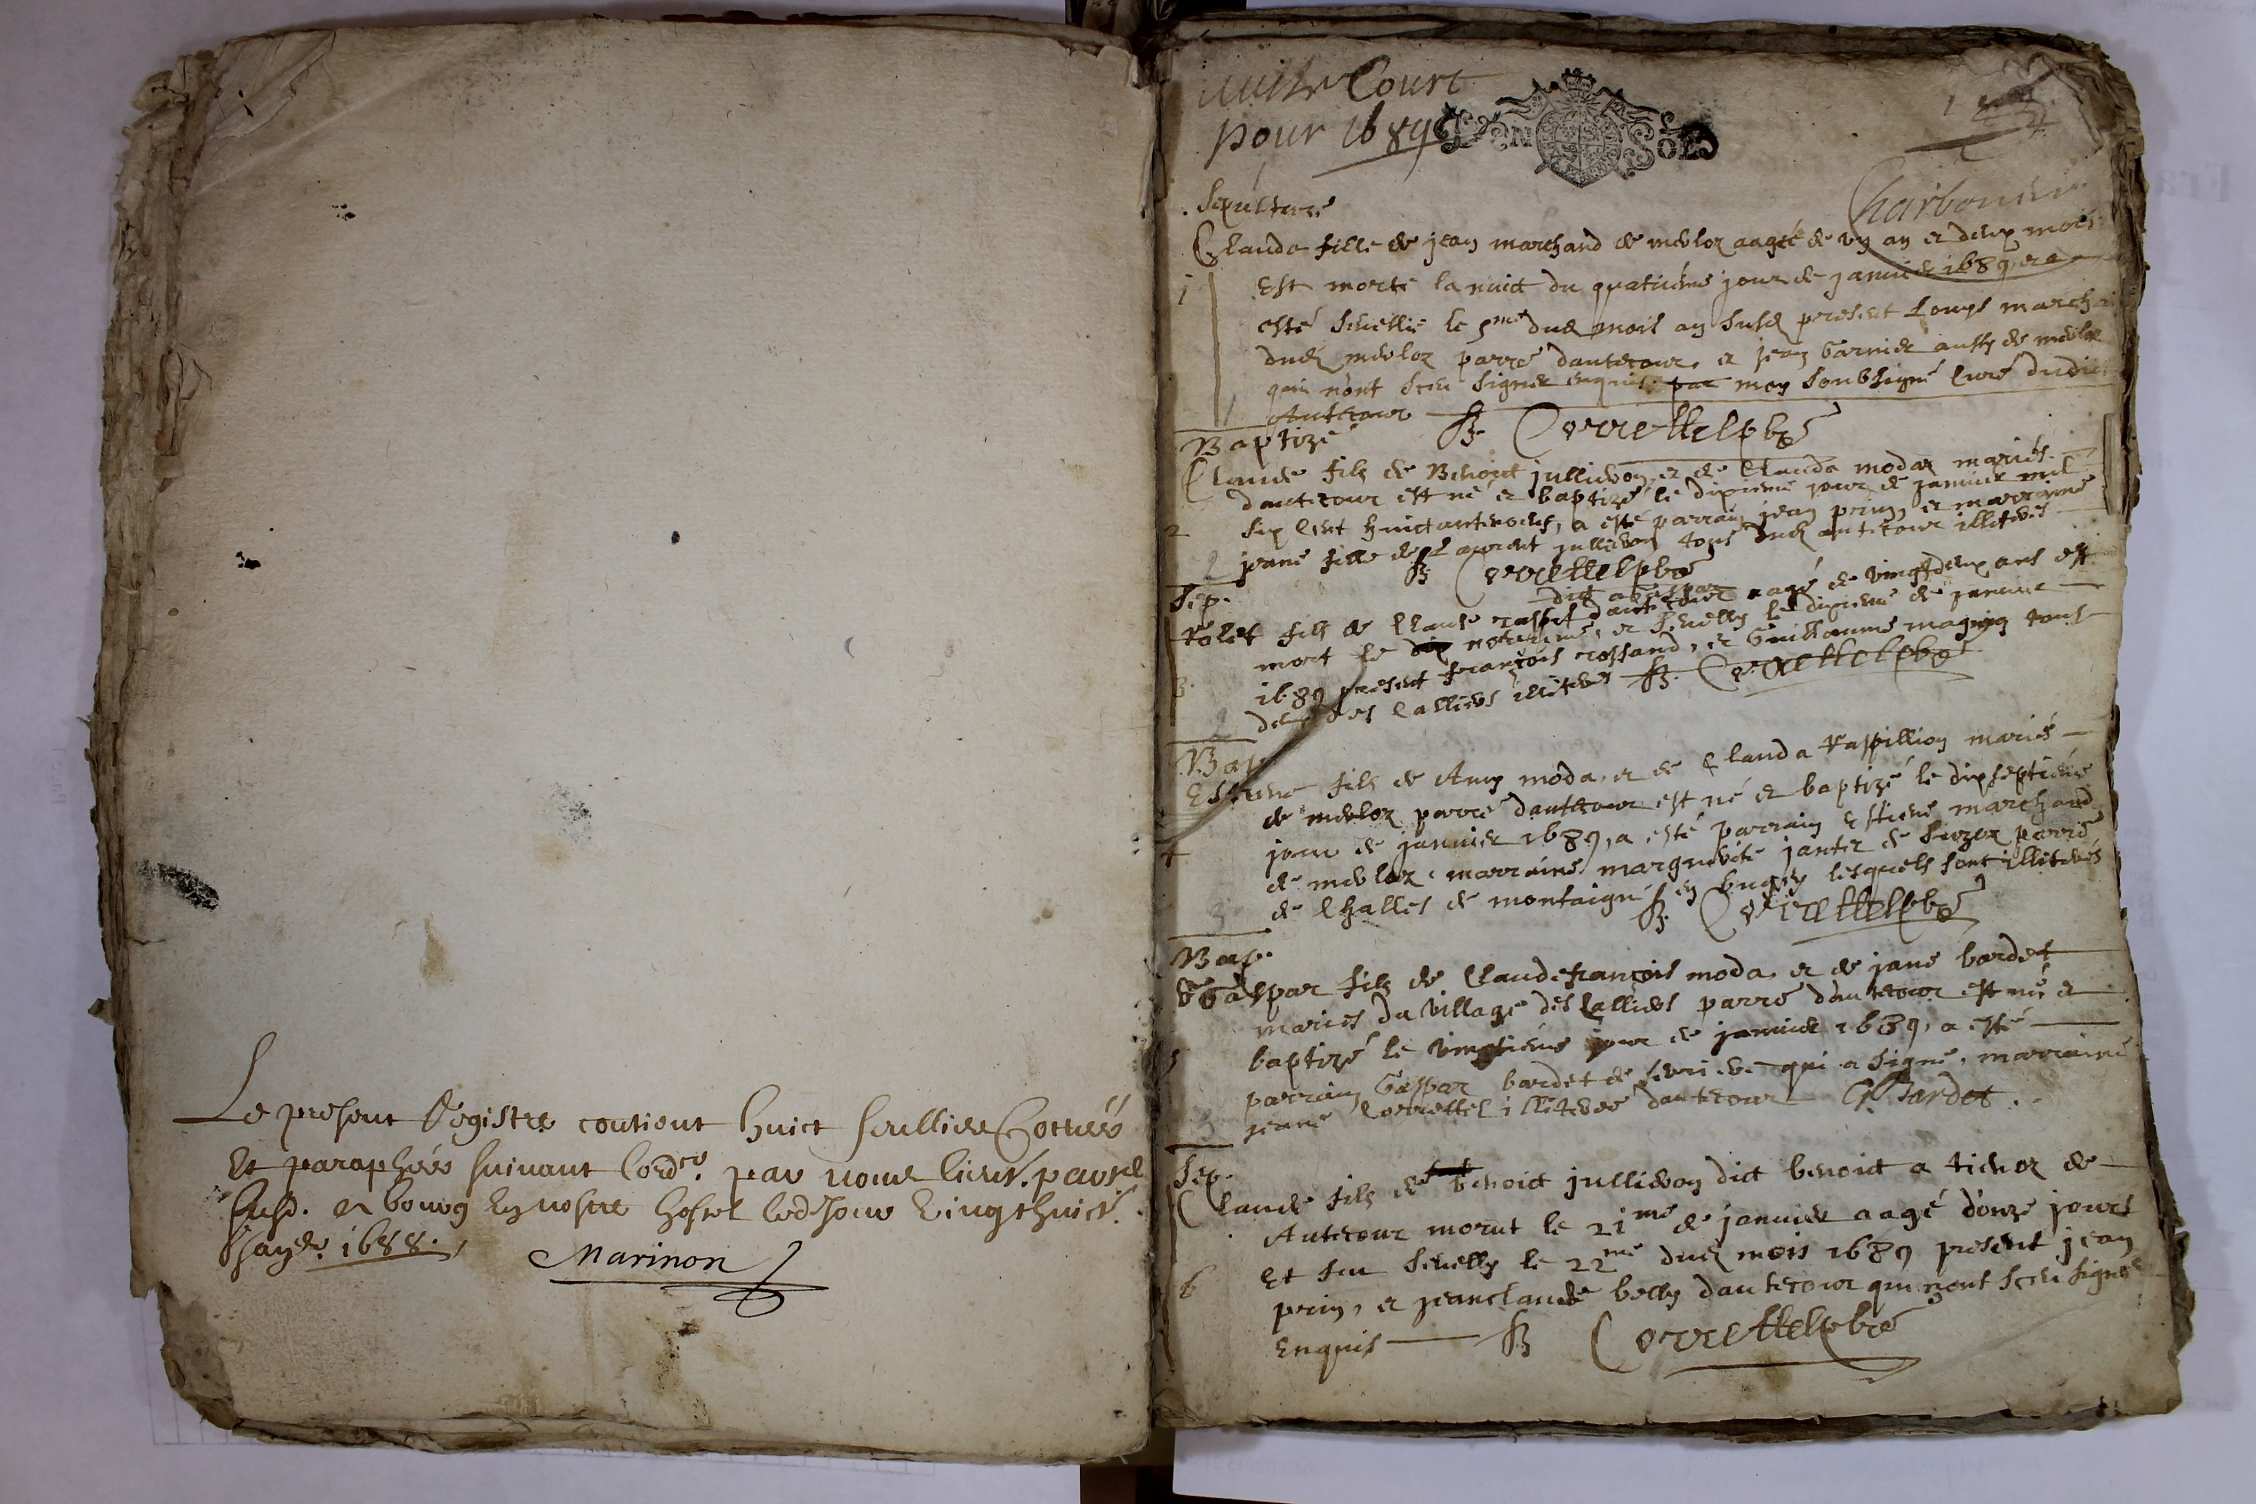 Le present Registre contient huict feullietz Cottées
Et paraphées suivant l'ord.ce par nous lieut. part.
susd. a bourg En nostre hostel led. jour vingthuict.
1688.
Marinon
Court
pour 1689
N SOL
1
Charbonnier
Sepulture
Clauda fille de jean marchand de mevloz aagee de un an et deux mois
1
Est morte la nuict du quatrieme jour de janvier 1689, et a
esté sevellie le 5me dud mois an susd present Louys marchand
dud mevloz parre d'autecour, et jean Garnier aussy de mevloz
qui n'ont sceu signer enquis par moy soubsigné Curé dudict
Autecour Correttel pbre
Baptize
Claude filz de Benoict jullievon, et de Clauda modaz mariés
d'autecour est né et baptizé le dixieme jour de janvier mil
2
six cent huictanteneuf, a esté parrain jean prin, et marraine
jeane fille de Laurent jullievon tous dud autecour illiterés
Correttel pbre
Sep.
filz de Claude d'autecour aagé de vingtdeux ans est
mort le dix et sevelly le dixieme de janvier
3.
1689 present françois rossand, et Guillaume magnin tous
deux des Calliers illiterés Correttel pbre
Bap
Estiene filz de Amy moda, et de Clauda rapillion mariés
de mevloz parre d'autecour est né et baptizé le dixseptieme
jour de janvier 1689, a esté parrain Estiene marchand
4
de mevloz, marraine marguerite jantet de parre
de Challes de montaigne en bugey lesquels sont illiterés
Correttel pbre
Bap.
Gaspar filz de Claudefrançois moda et de jane bardet
mariés du village des Calliers parre d'autecour est né et
baptizé le vingtieme jour de janvier 1689, a esté
5
parrain Gaspar bardet de qui a signé, marraine
jeane Correttel illiteree d'autecour G Bardet.
Sep.
Claude filz de benoict jullievon dict benoict a tienoz de
Autecour morut le 21me de janvier aagé d'onze jours
Et fut sevelly le 22me dud mois 1689 present jean
6
prin, et jeanclaude belly d'autecour qui n'ont sceu signer
Enquis Correttel pbre